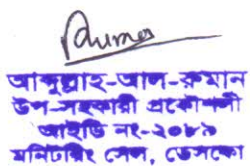 Ruman
আব্দুল্লাহ-আল-রুমান
উপ-সহকারী প্রকৌশলী
আইডি নং-২০৮৯
মনিটরিং সেল, ডেসকো